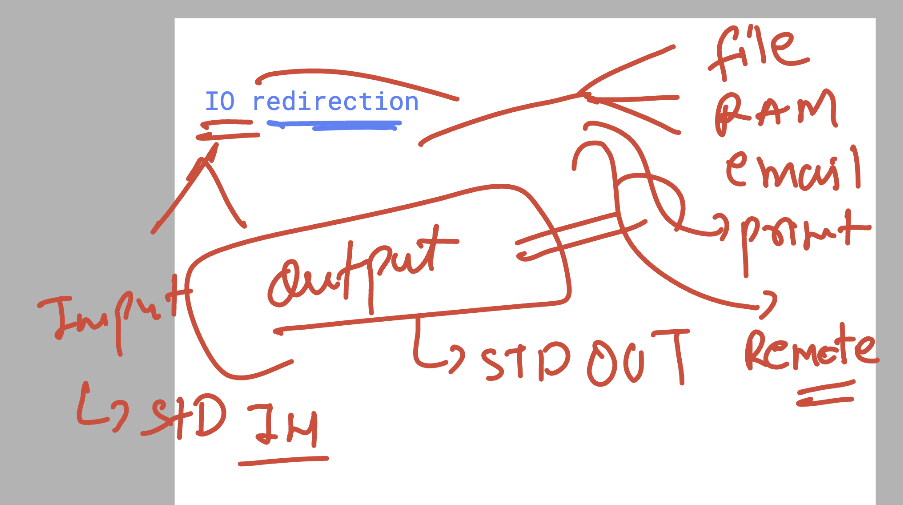 IO redirection
file
RAM
email
print
Remote
Output
STD OUT
Input
STD IN